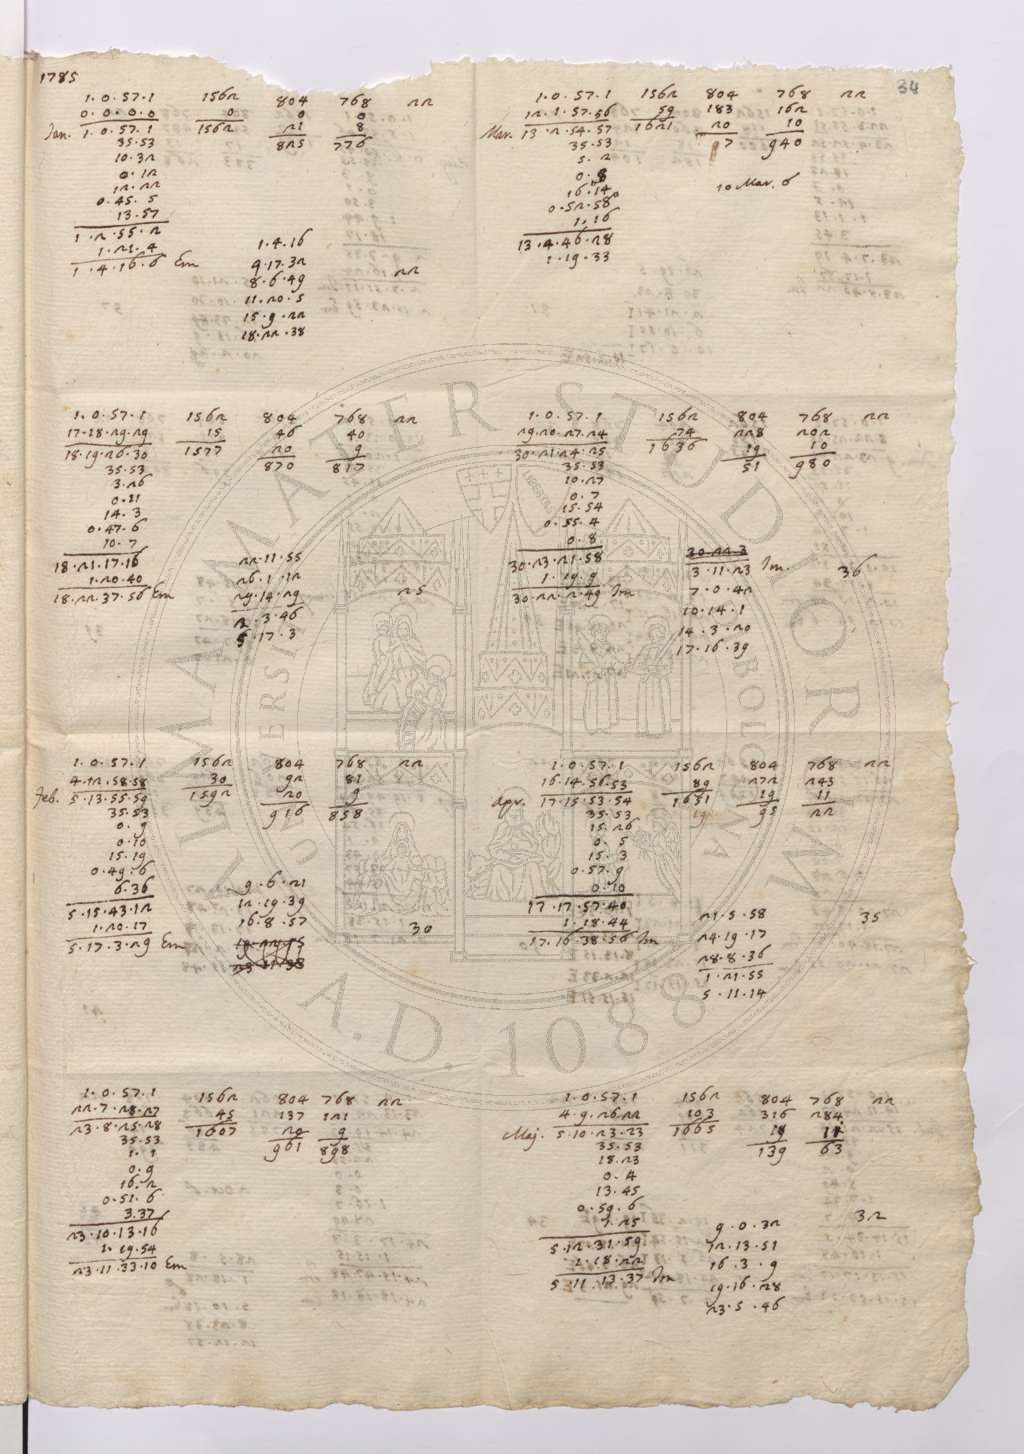 1785
34
1.0.57.1 1562 804 768 22
0.0.0.0 0 0 0
Jan. 1.0.57.1 1562 21 8
35.53 825 776
10.32
0.12
12.22
0.45.5
13.57
1.2.55.2
1.21.4 1.4.16
1.4.16.6 Em 9.17.32
8.6.49 22
11.20.5
15.9.22
18.22.38
1.0.57.1 1562 804 768 22
12.1.57.56 59 183 162
Mar. 13.2.54.57 1621 20 10
35.53 7 940
5.2
0.8
16.14 10 Mar. 6
0.52.58
1.16
13.4.46.28
1.19.33
1.0.57.1 1562 804 768 22
17.18.29.29 15 46 40
18.19.26.30 1577 20 9
35.53 870 817
3.26
0.11
14.3
0.47.6
10.7
18.21.17.16 22.11.55
1.20.40 26.1.12
18.22.37.56 Em 29.14.29 25
2.3.46
5.17.3
1.0.57.1 1562 804 768 22
29.20.27.24 74 228 202
30.21.24.25 1636 19 10
35.53 51 980
10.27
0.7
15.54
0.55.4
0.8 30.22.3
30.23.21.58 3.11.23 Im. 36
1.19.9 7.0.42
30.22.2.49 Im 10.14.1
14.3.20
17.16.39
1.0.57.1 1562 804 768 22
4.12.58.58 30 92 81
Feb. 5.13.55.59 1592 20 9
35.53 916 858
0.9
0.10
15.19
0.49.6
6.36 9.6.21
5.15.43.12 12.19.39
1.20.17 16.8.57 30
5.17.3.29 Em
1.0.57.1 1562 804 768 22
16.14.56.53 89 272 243
Apr. 17.15.53.54 1651 19 11
35.53 95 22
15.26
0.5
15.3
0.57.9
0.10
17.17.57.40 21.5.58 35
1.18.44 24.19.17
17.16.38.56 Im 28.8.36
1.21.55
5.11.14
1.0.57.1 1562 804 768 22
22.7.28.27 45 137 121
23.8.25.28 1607 20 9
35.53 961 898
1.1
0.9
16.2
0.51.6
3.37
23.10.13.16
1.19.54
23.11.33.10 Em
1.0.57.1 1562 804 768 22
4.9.26.22 103 316 284
Maj. 5.10.23.23 1665 19 11
35.53 139 63
18.23
0.4
13.45
0.59.6
1.25 9.0.32 32
5.12.31.59 12.13.51
1.18.22 16.3.9
5.11.13.37 Im 19.16.28
23.5.46
ALMA MATER STUDIORUM
A.D. 1088